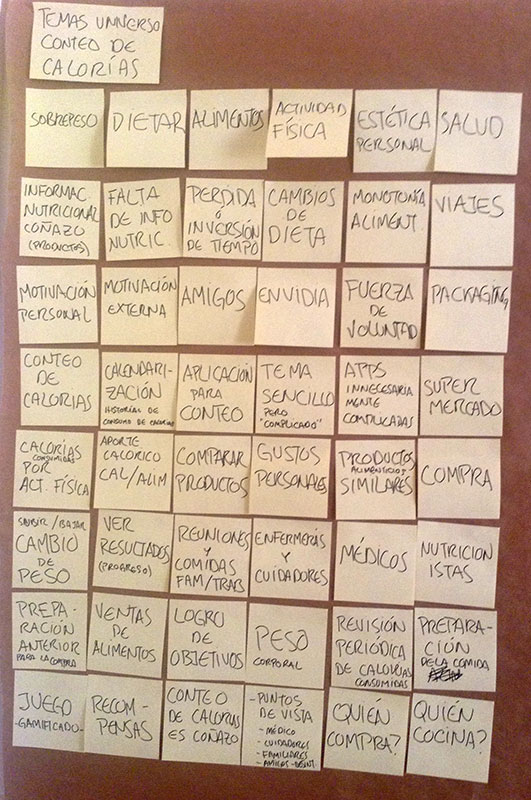 TEMAS UNIVERSO
CONTEO DE
CALORÍAS
SOBREPESO
DIETAR
ALIMENTOS
ACTIVIDAD
FÍSICA
ESTÉTICA
PERSONAL
SALUD
INFORMAC.
NUTRICIONAL
COÑAZO
(PRODUCTOS)
FALTA
DE INFO
NUTRIC.
PERDIDA
Ó
INVERSIÓN
DE TIEMPO
CAMBIOS
DE
DIETA
MONOTONÍA
ALIMENT.
VIAJES
MOTIVACIÓN
PERSONAL
MOTIVACIÓN
EXTERNA
AMIGOS
ENVIDIA
FUERZA
DE
VOLUNTAD
PACKAGING
CONTEO
DE
CALORIAS
CALENDARI-
ZACIÓN
HISTORIAS DE
CONSUMO DE CALORIAS
APLICACIÓN
PARA
CONTEO
TEMA
SENCILLO
PERO
"COMPLICADO"
APPS
INNECESARIA
MENTE
COMPLICADAS
SUPER
MERCADO
CALORÍAS
CONSUMIDAS
POR
ACT. FÍSICA
APORTE
CALORICO
CAL/ALIM
COMPARAR
PRODUCTOS
GUSTOS
PERSONALES
PRODUCTOS
ALIMENTICIOS
SIMILARES
COMPRA
SUBIR/BAJAR
CAMBIO
DE
PESO
VER
RESULTADOS
(PROGRESO)
REUNIONES
Y
COMIDAS
FAM/TRAB
ENFERMERÁS
Y
CUIDADORES
MÉDICOS
NUTRICION
ISTAS
PREPA-
RACIÓN
ANTERIOR
PARA LA COMPRA
VENTAS
DE
ALIMENTOS
LOGRO
DE
OBJETIVOS
PESO
CORPORAL
REVISIÓN
PERIÓDICA
DE CALORÍAS
CONSUMIDAS
PREPARA-
CIÓN
DE LA COMIDA
JUEGO
-GAMIFICADO-
RECOM-
PENSAS
CONTEO
DE CALORIAS
ES COÑAZO
-PUNTOS
DE VISTA
-MÉDICO
-CUIDADORES
-FAMILIARES
QUIÉN
COMPRA?
QUIÉN
COCINA?